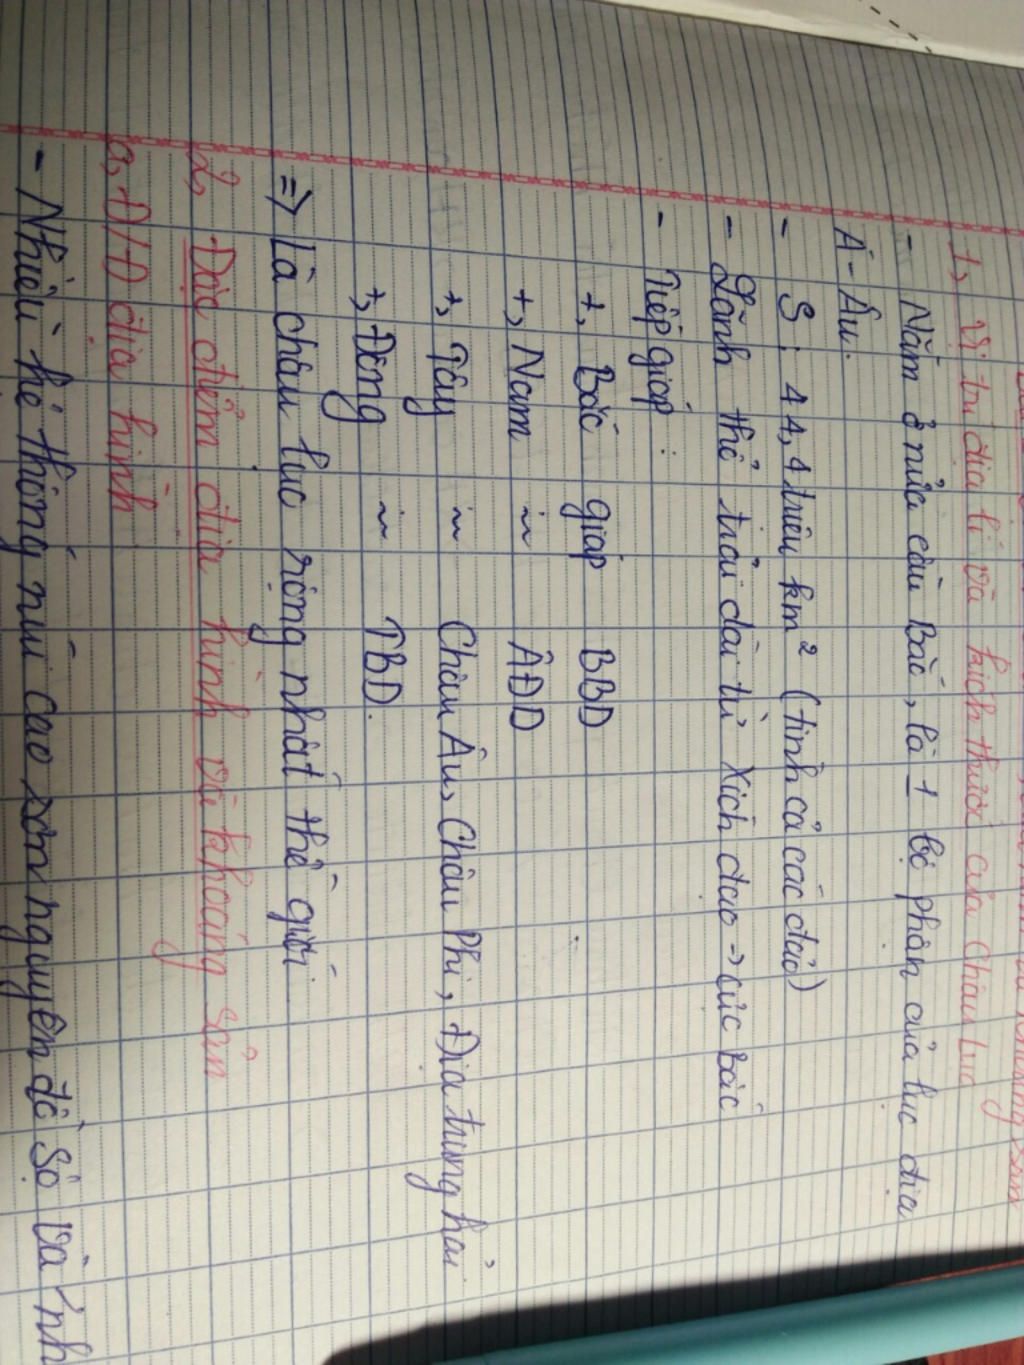 1, Vị trí địa lí và kích thước của Châu Lục
- Nằm ở nửa cầu Bắc, là 1 bộ phận của lục địa
Á - Âu.
- S : 44,4 triệu km² (tính cả các đảo)
- Lãnh thổ trải dài từ Xích đạo → cực Bắc
- Tiếp giáp :
+, Bắc giáp BBD
+, Nam ~ ÂĐD
+, Tây ~ Châu Âu, Châu Phi, Địa trung hải
+, Đông ~ TBD.
=> Là châu lục rộng nhất thế giới
2, Đặc điểm địa hình và khoáng sản
a, Đ/Đ địa hình
- Nhiều hệ thống núi cao sơn nguyên đồ sộ và nh